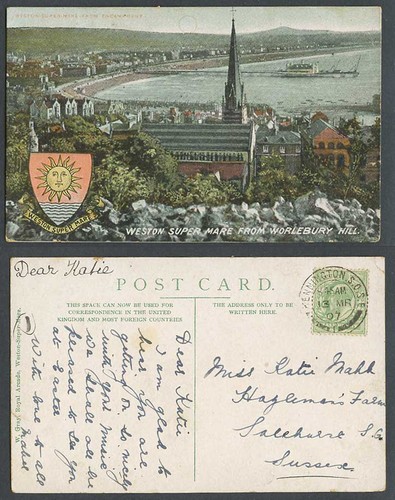 WESTON SUPER MARE
WESTON SUPER MARE FROM WORLEBURY HILL.
Dear Katie
POST CARD.
THIS SPACE CAN NOW BE USED FOR
CORRESPONDENCE IN THE UNITED
KINGDOM AND MOST FOREIGN COUNTRIES
THE ADDRESS ONLY TO BE
WRITTEN HERE.
KENNINGTON S.O.S.E
13 MR
07
Dear Katie
I am glad to
hear you are
getting on so nicely
with your Music
we shall all be
pleased to see you
at Easter
With love to all
Mabel
Royal Arcade, Weston-Super-Mare.
Miss Katie
Farm
Salehurst
Sussex